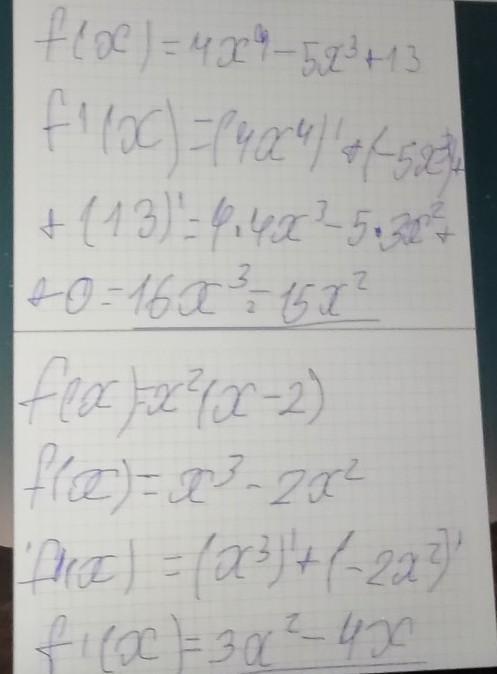 f(x)=4x⁴-5x³+13
f'(x)=(4x⁴)'+(-5x³)'+
+(13)'=4·4x³-5·3x²+
+0=16x³-15x²
f(x)=x²(x-2)
f(x)=x³-2x²
f'(x)=(x³)'+(-2x²)'
f'(x)=3x²-4x